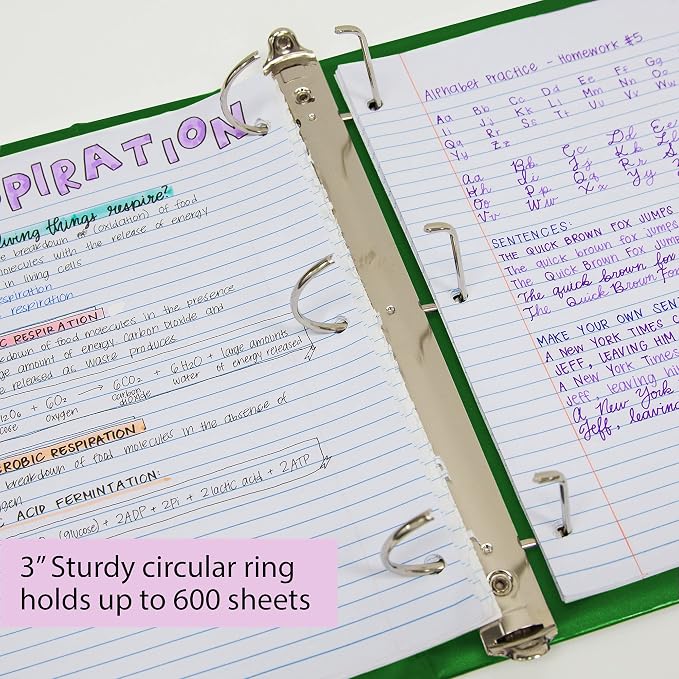 PIRATION
living things respire?
e breakdown of (oxidation) of food
olecules with the release of energy
in living cells
espiration
respiration
IC RESPIRATION
akdown of food molecules in the presence
ge amount of energy. Carbon Dioxide and
e released as waste produces.
H₁₂O₆ + 6O₂ → 6CO₂ + 6H₂O + large amounts
cose oxygen carbon dioxide water of energy released
EROBIC RESPIRATION
breakdown of food molecules in the absence of
ygen
C ACID FERMINTATION:
(glucose) + 2ADP + 2Pi → 2 lactic acid + 2ATP
Alphabet Practice - Homework #5
Aa Bb Cc Dd Ee Ff Gg
Ii Jj Kk Ll Mm Nn Oo
Qq Rr Ss Tt Uu Vv
Yy Zz
Aa Bb Cc Dd Ee
Hh Ii Jj Kk Ll
Oo Pp Qq Rr Ss
Vv Ww Xx Yy
SENTENCES:
THE QUICK BROWN FOX JUMPS
The quick brown fox jumps
The Quick Brown Fox Jumps
The quick brown fox
The Quick Brown Fox
MAKE YOUR OWN SEN
A NEW YORK TIMES C
JEFF, LEAVING HIM
A New York Times
Jeff, leaving hi
A New York
Jeff, leavin
3" Sturdy circular ring
holds up to 600 sheets